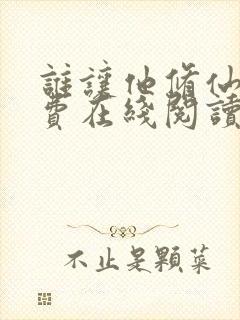 誰讓他修仙
費在綫閱讀
不止是顆菜